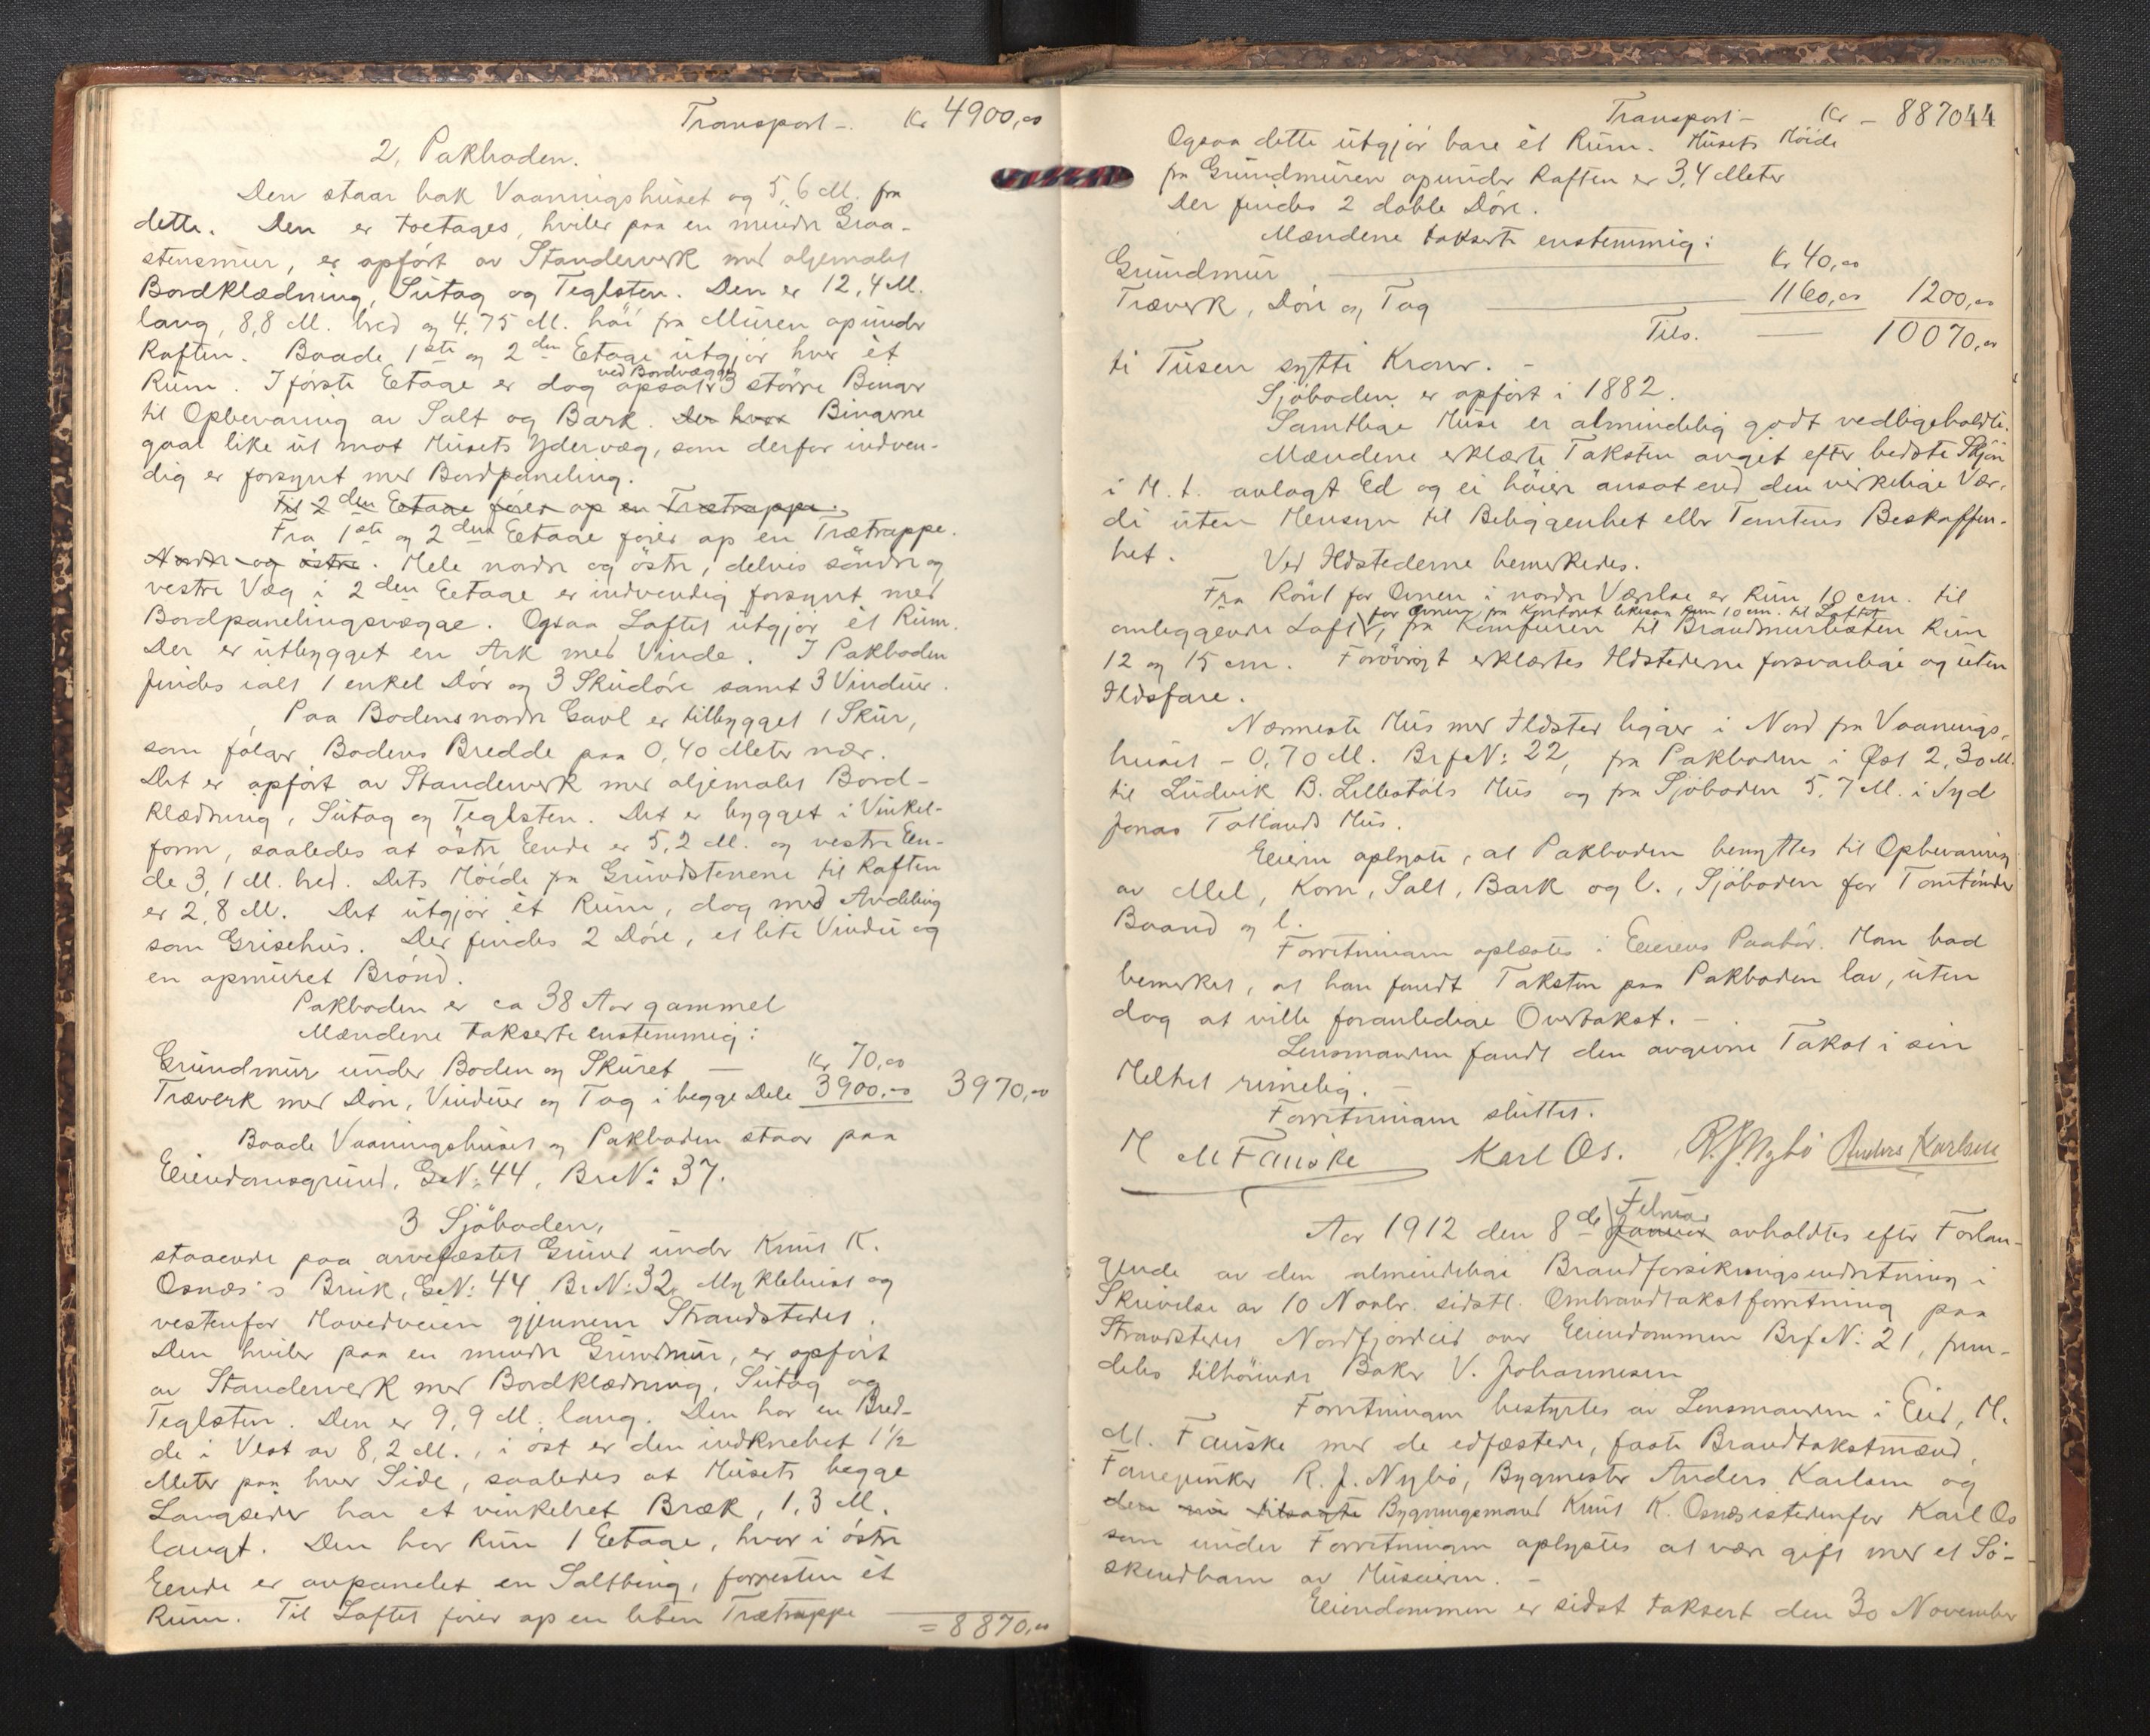 Transport -. Kr 4900,00
2, Pakboden.
Den staar bak Vaaningshuset og 5,6 M. fra
dette. Den er toetages, hviler paa en mindre Graa-
stensmur, er opført av Standerverk med oljemalet
Bordklædning, Sutag og Teglsten. Den er 12,4 M.
lang, 8,8 M. bred og 4,75 M. høi fra Muren opunder
Raften. Baade 1ste og 2den Etage utgjør hver èt
Rum. I første Etage er dog ved Bordvægge opsatt 3 større Binger
til Opbevaring av Salt og Bark. Der hvor Bingerne
gaar like ut mot Husets Ydervæg, som derfor indven-
dig er forsynt med Bordpaneling.
Til 2den Etage fører op en Trætrappe.
Fra 1ste og 2den Etage fører op en Trætrappe.
Nordre og østre. Hele nordre og østre, delvis søndre og
vestre Væg i 2den Etage er indvendig forsynt med
Bordpanelingsvægge. Ogsaa Loftet utgjør èt Rum.
Der er utbygget en Ark med Vinde. I Pakboden
findes ialt 1 enkel Dør og 3 Skudøre samt 3 Vinduer.
Paa Bodens nordre Gavl er tilbygget 1 Skur,
som følger Bodens Bredde paa 0,40 Meter nær.
Det er opført av Standerverk med oljemalet Bord-
klædning, Sutag og Teglsten. Det er bygget i Vinkel-
form, saaledes at østre Ende er 5,2 M. og vestre En-
de 3,1 M. bred. Dets Høide fra Grundstenene til Raften
er 2,8 M. Det utgjør èt Rum, dog med Avdeling
som Grisehus. Der findes 2 Døre, et lite Vindu og
en opmuret Brønd.
Pakboden er ca 38 Aar gammel
Mændene takserte enstemmig:
Grundmur under Boden og Skuret — Kr 70,00
Træverk med Døre, Vinduer og Tag i begge Dele 3900,00 3970,00
Baade Vaaningshuset og Pakboden staar paa
Eiendomsgrund, G.N: 44, Br.N: 37.
3 Sjøboden,
staaende paa arvefæstet Grund under Knut K.
Osnæs's Bruk, G.N: 44 Br.N: 32 Myklebust og
vestenfor Hovedveien gjennem Strandstedet.
Den hviler paa en mindre Grundmur, er opført
av Standerverk med Bordklædning, Sutag og
Teglsten. Den er 9,9 M. lang. Den har en Bred-
de i Vest av 8,2 M., i øst er den indknebet 1½
Meter paa hver Side, saaledes at Husets begge
Langsider har et vinkelret Bræk, 1,3 M.
langt. Den har kun 1 Etage, hvor i østre
Ende er avpanelet en Saltbing, forresten èt
Rum. Til Loftet fører op en liten Trætrappe
= 8870,00
Transport - Kr - 8870 44
Ogsaa dette utgjør bare èt Rum. Husets Høide
fra Grundmuren opunder Raften er 3,4 Meter
Der findes 2 doble Døre.
Mændene takserte enstemmig:
Grundmur — Kr 40,00
Træverk, Døre og Tag — 1160,00 1200,00
Tils. — 10070,00
ti Tusen sytti Kroner. -
Sjøboden er opført i 1882.
Samtlige Huse er almindelig godt vedligeholdte.
Mændene erklærte Taksten avgit efter bedste Skjøn
i H. t. avlagt Ed og ei høiere ansat end den virkelige Vær-
di uten Hensyn til Beliggenhet eller Tomtens Beskaffen-
het. Ved Ildstederne bemerkedes.
Fra Rørct for Ovnen i nordre Værelse er kun 10 cm. til
for Ovnen fra Kontoret likesaa kun 10 cm. til Loftet
omliggende Loft, fra Komfuren til Brandmurlisten kun
12 og 15 cm. Forøvrigt erklærtes Ildstederne forsvarlige og uten
Ildsfare.
Nærmeste Hus med Ildsted ligger i Nord fra Vaanings-
huset - 0,70 M. Brf.N: 22, fra Pakboden i Øst 2,30 M.
til Ludvik B. Lillestøls Hus og fra Sjøboden 5,7 M. i Syd
Jonas Totlands Hus.
Eieren oplyste, at Pakboden benyttes til Opbevaring
av Mel, Korn, Salt, Bark og l., Sjøboden for Tomtønder
Baand og l.
Forretningen oplæstes i Eierens Paahør. Han bad
bemerket, at han fandt Taksten paa Pakboden lav, uten
dog at ville foranledige Overtakst. -
Lensmanden fandt den avgivne Takst i sin
Helhet rimelig. -
Forretningen sluttet.
H M Fauske Karl Os. R. J. Nybø Anders Karlsen
Aar 1912 den 8de Februar Januar avholdtes efter Forlan-
gende av den almindelige Brandforsikringsindretning i
Skrivelse av 10 Novbr. sidstl. Ombrandtakstforretning paa
Strandstedet Nordfjordeid over Eiendommen Brf.N: 21, frem-
deles tilhørende Baker V. Johannesen
Forretningen bestyrtes av Lensmanden i Eid, H.
M. Fauske med de edfæstede, faste Brandtakstmænd,
Fanejunker R. J. Nybø, Bygmester Anders Karlsen og
den nu tilsagte Bygningsmand Knut K. Osnæs istedenfor Karl Os
som under Forretningen oplystes at være gift med et Sø-
skendbarn av Huseieren. -
Eiendommen er sidst taksert den 30 November